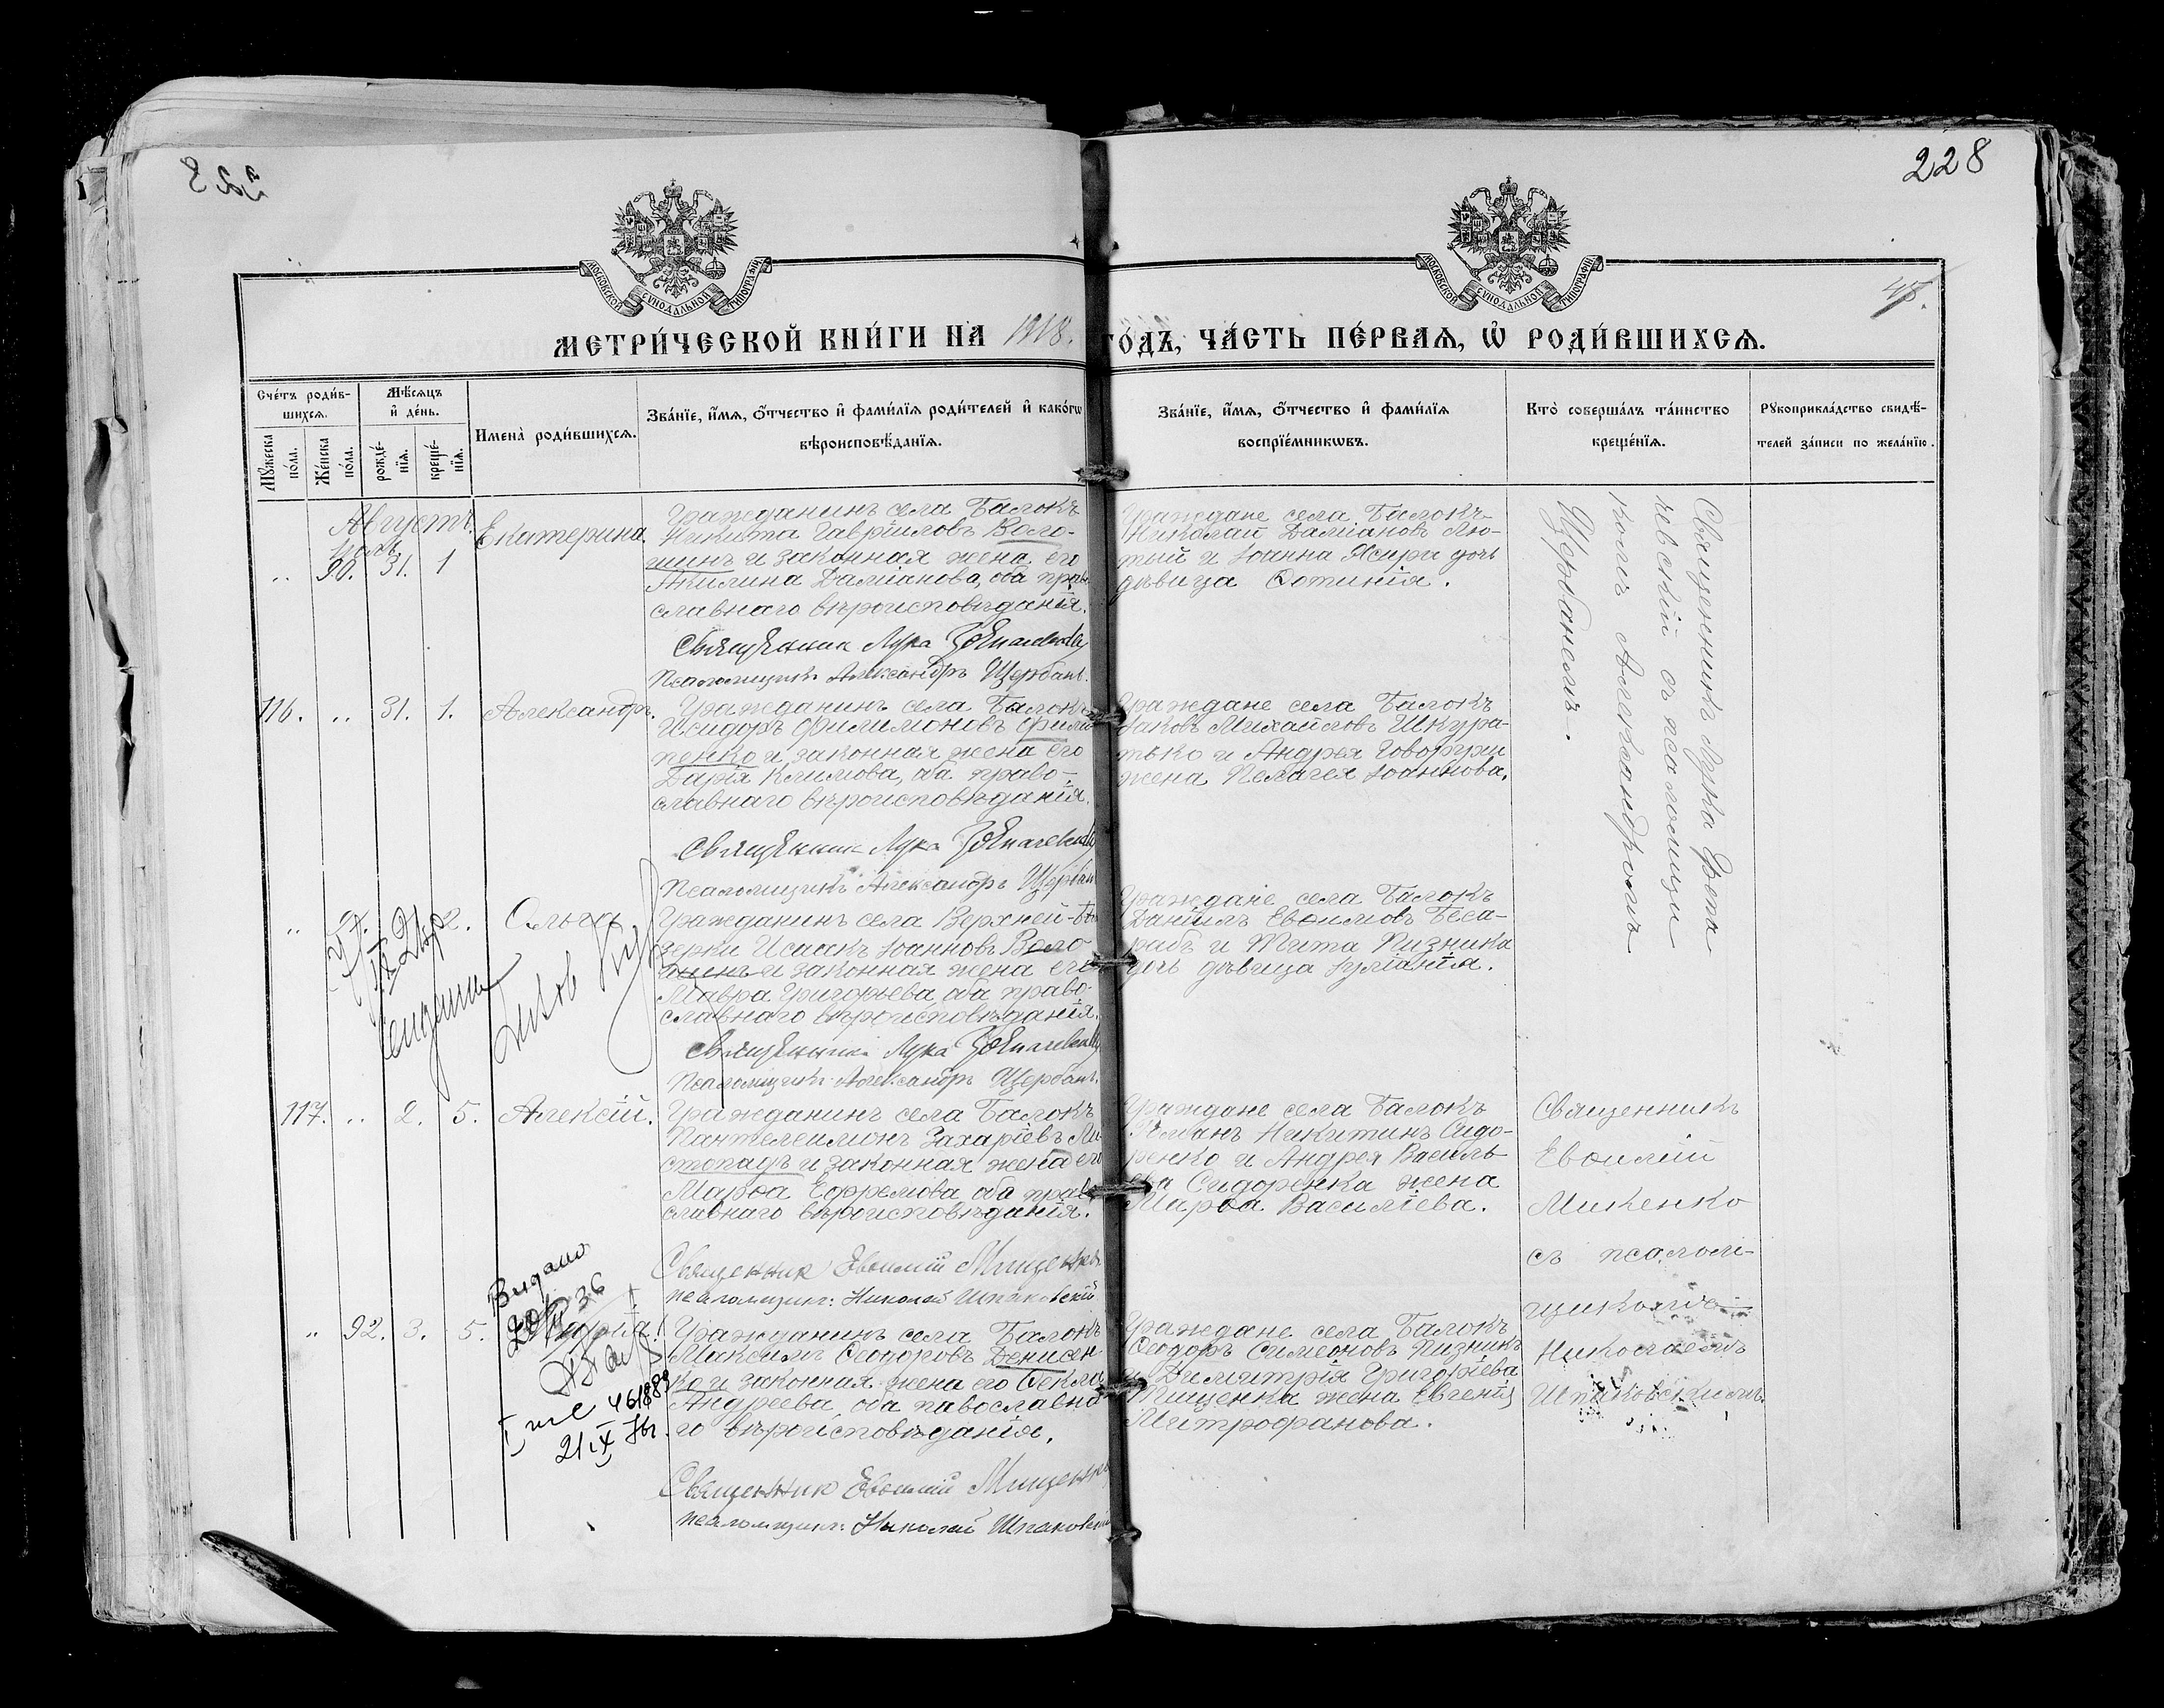 228
МОСКОВСКОЙ СѴНОДАЛЬНОЙ ТИПОГРАФІИ
МОСКОВСКОЙ СѴНОДАЛЬНОЙ ТИПОГРАФІИ
45.
МЕТРИ́ЧЕСКОЙ КНИ́ГИ НА 1918. ГО́ДЪ, ЧА́СТЬ ПЕ́РВАѦ, Ѡ҆ РОДИ́ВШИХСѦ.
Сче́тъ роди́в-
шихсѧ.
Мѣ́сѧцъ
и҆ де́нь.
Имена̀ роди́вшихсѧ.
Зва́нїе, и҆́мѧ, о҆́тчество и҆ фами́лїѧ роди́телей и҆ како́гѡ
вѣроисповѣ́данїѧ.
Мꙋ́жеска
по́ла.
Же́нска
по́ла.
рожде́-
нїѧ.
креще́-
нїѧ.
Зва́нїе, и҆́мѧ, о҆́тчество и҆ фами́лїѧ
воспрїе́мникѡвъ.
Кто̀ соверша́лъ та́инство
креще́нїѧ.
Рꙋкоприкла́дство свидѣ́-
телей за́писи по жела́нїю.
Августъ.
90. 31. 1
Екатерина.
Гражданинъ села Балокъ
Никита Гавріиловъ Воло-
шинъ и законная жена его
Акилина Даміанова, оба право-
славнаго вѣроисповѣданія.
Священник Лука
Псаломщикъ Александръ Щербань.
Граждане села Балокъ
Николай Даміановъ Лю-
тый и Іоанна Ясыри дочь
дѣвица Фотинія.
Священникъ Лука
съ псаломщи
комъ Александромъ
Щербанемъ.
116. .. 31. 1.
Александръ.
Гражданинъ села Балокъ
Исидоръ Филимоновъ Филип
пенко и законная жена его
Дарія Климова, оба право-
славнаго вѣроисповѣданія.
Священник Лука
Псаломщикъ Александръ Щербань
Граждане села Балокъ
Іаковъ Михайловъ Шкура-
тько и Андрея Говорухи
жена Пелагея Іоаннова.
.. 2.
Ольга
Гражданинъ села Верхней-Бѣло
зерки Исаакъ Іоанновъ Воло
шинъ и законная жена его
Мавра Григорьева, оба право-
славнаго вѣроисповѣданія.
Священник Лука
Псаломщикъ Александръ Щербань.
Граждане села Балокъ
Даніилъ Евѳимовъ Беса-
рабъ и Тита Пизника
дочь дѣвица Іуліанія.
117. .. 2. 5.
Алексій.
Гражданинъ села Балокъ
Пантелеимонъ Захаріевъ Ли-
стопадъ и законная жена его
Марѳа Ефремова оба право
славнаго вѣроисповѣданія.
Священник Евѳимій Мищенко
псаломщик: Николай Шпаковскій
Граждане села Балокъ
Романъ Никитинъ Сидо-
ренко и Андрея Василь
ева Сидоренка жена
Марѳа Василіева.
Священникъ
Евѳимій
съ псалом-
щикомъ
Николаемъ
Шпаковскимъ.
Видано
.. 92. 3. 5.
Гражданинъ села Балокъ
Максимъ Ѳеодоровъ Денисен-
ко и законная жена его Ѳекла
Андреева, оба павославна-
го вѣроисповѣданія.
Священник Евѳимій Мищенко
псаломщик: Николай Шпаковскій
Граждане села Балокъ
Ѳеодоръ Симеоновъ Пизникъ
и Димитрія Григоріева
Тищенка жена Евгенія
Митрофанова.
461883
21 IX